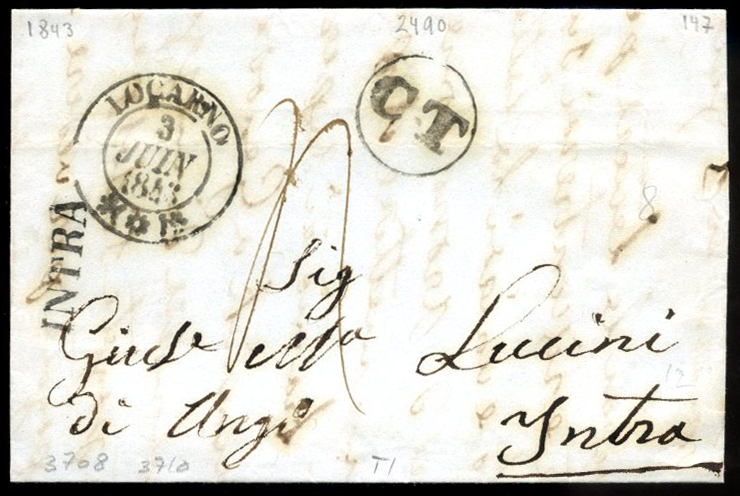 1843 2490 147
C T
LOCARNO
3
JUIN
1843
INTRA
8
Sig
Gius.e M.a Lucini
di Ang.o
Intra
12
3708 3710 T1